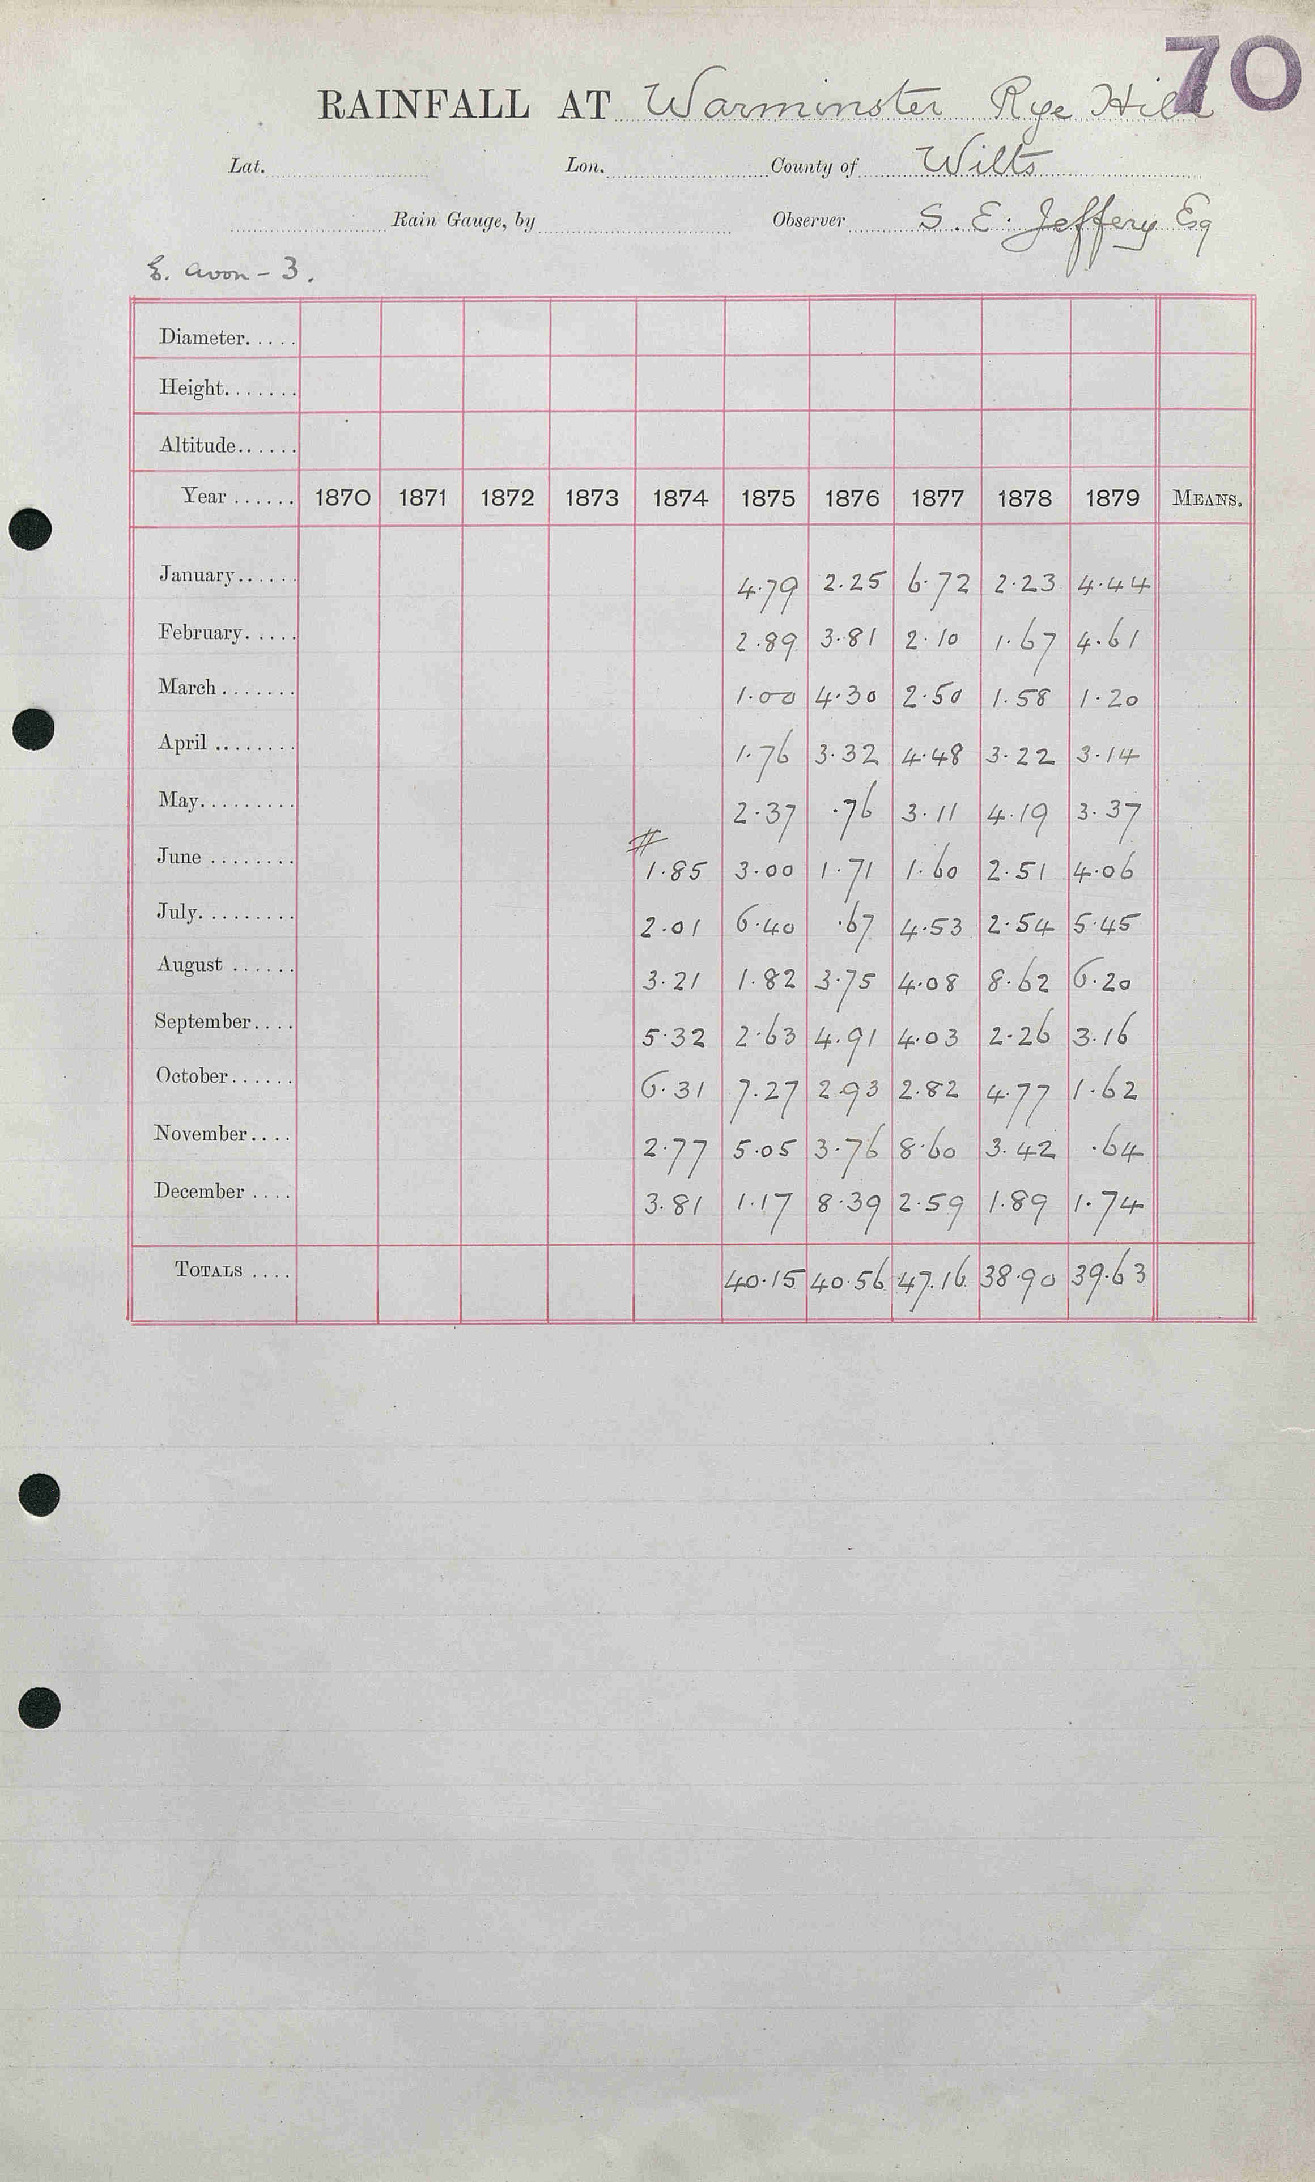 70
RAINFALL AT Warminster Rye Hill
Lat. Lon. County of Wilts
Rain Gauge, by Observer S. E. Jeffery Esq
avon - 3.
Diameter.....
Height.......
Altitude......
Year ...... 1870 1871 1872 1873 1874 1875 1876 1877 1878 1879 MEANS.
January...... 4.79 2.25 6.72 2.23 4.44
February..... 2.89 3.81 2.10 1.67 4.61
March ....... 1.00 4.30 2.50 1.58 1.20
April ........ 1.76 3.32 4.48 3.22 3.14
May......... 2.37 .76 3.11 4.19 3.37
June ........ 1.85 3.00 1.71 1.60 2.51 4.06
July......... 2.01 6.40 .67 4.53 2.54 5.45
August ...... 3.21 1.82 3.75 4.08 8.62 6.20
September.... 5.32 2.63 4.91 4.03 2.26 3.16
October...... 6.31 7.27 2.93 2.82 4.77 1.62
November.... 2.77 5.05 3.76 8.60 3.42 .64
December .... 3.81 1.17 8.39 2.59 1.89 1.74
TOTALS .... 40.15 40.56 47.16 38.90 39.63